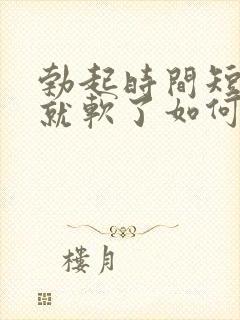 勃起時間短
就軟了如何
樓月